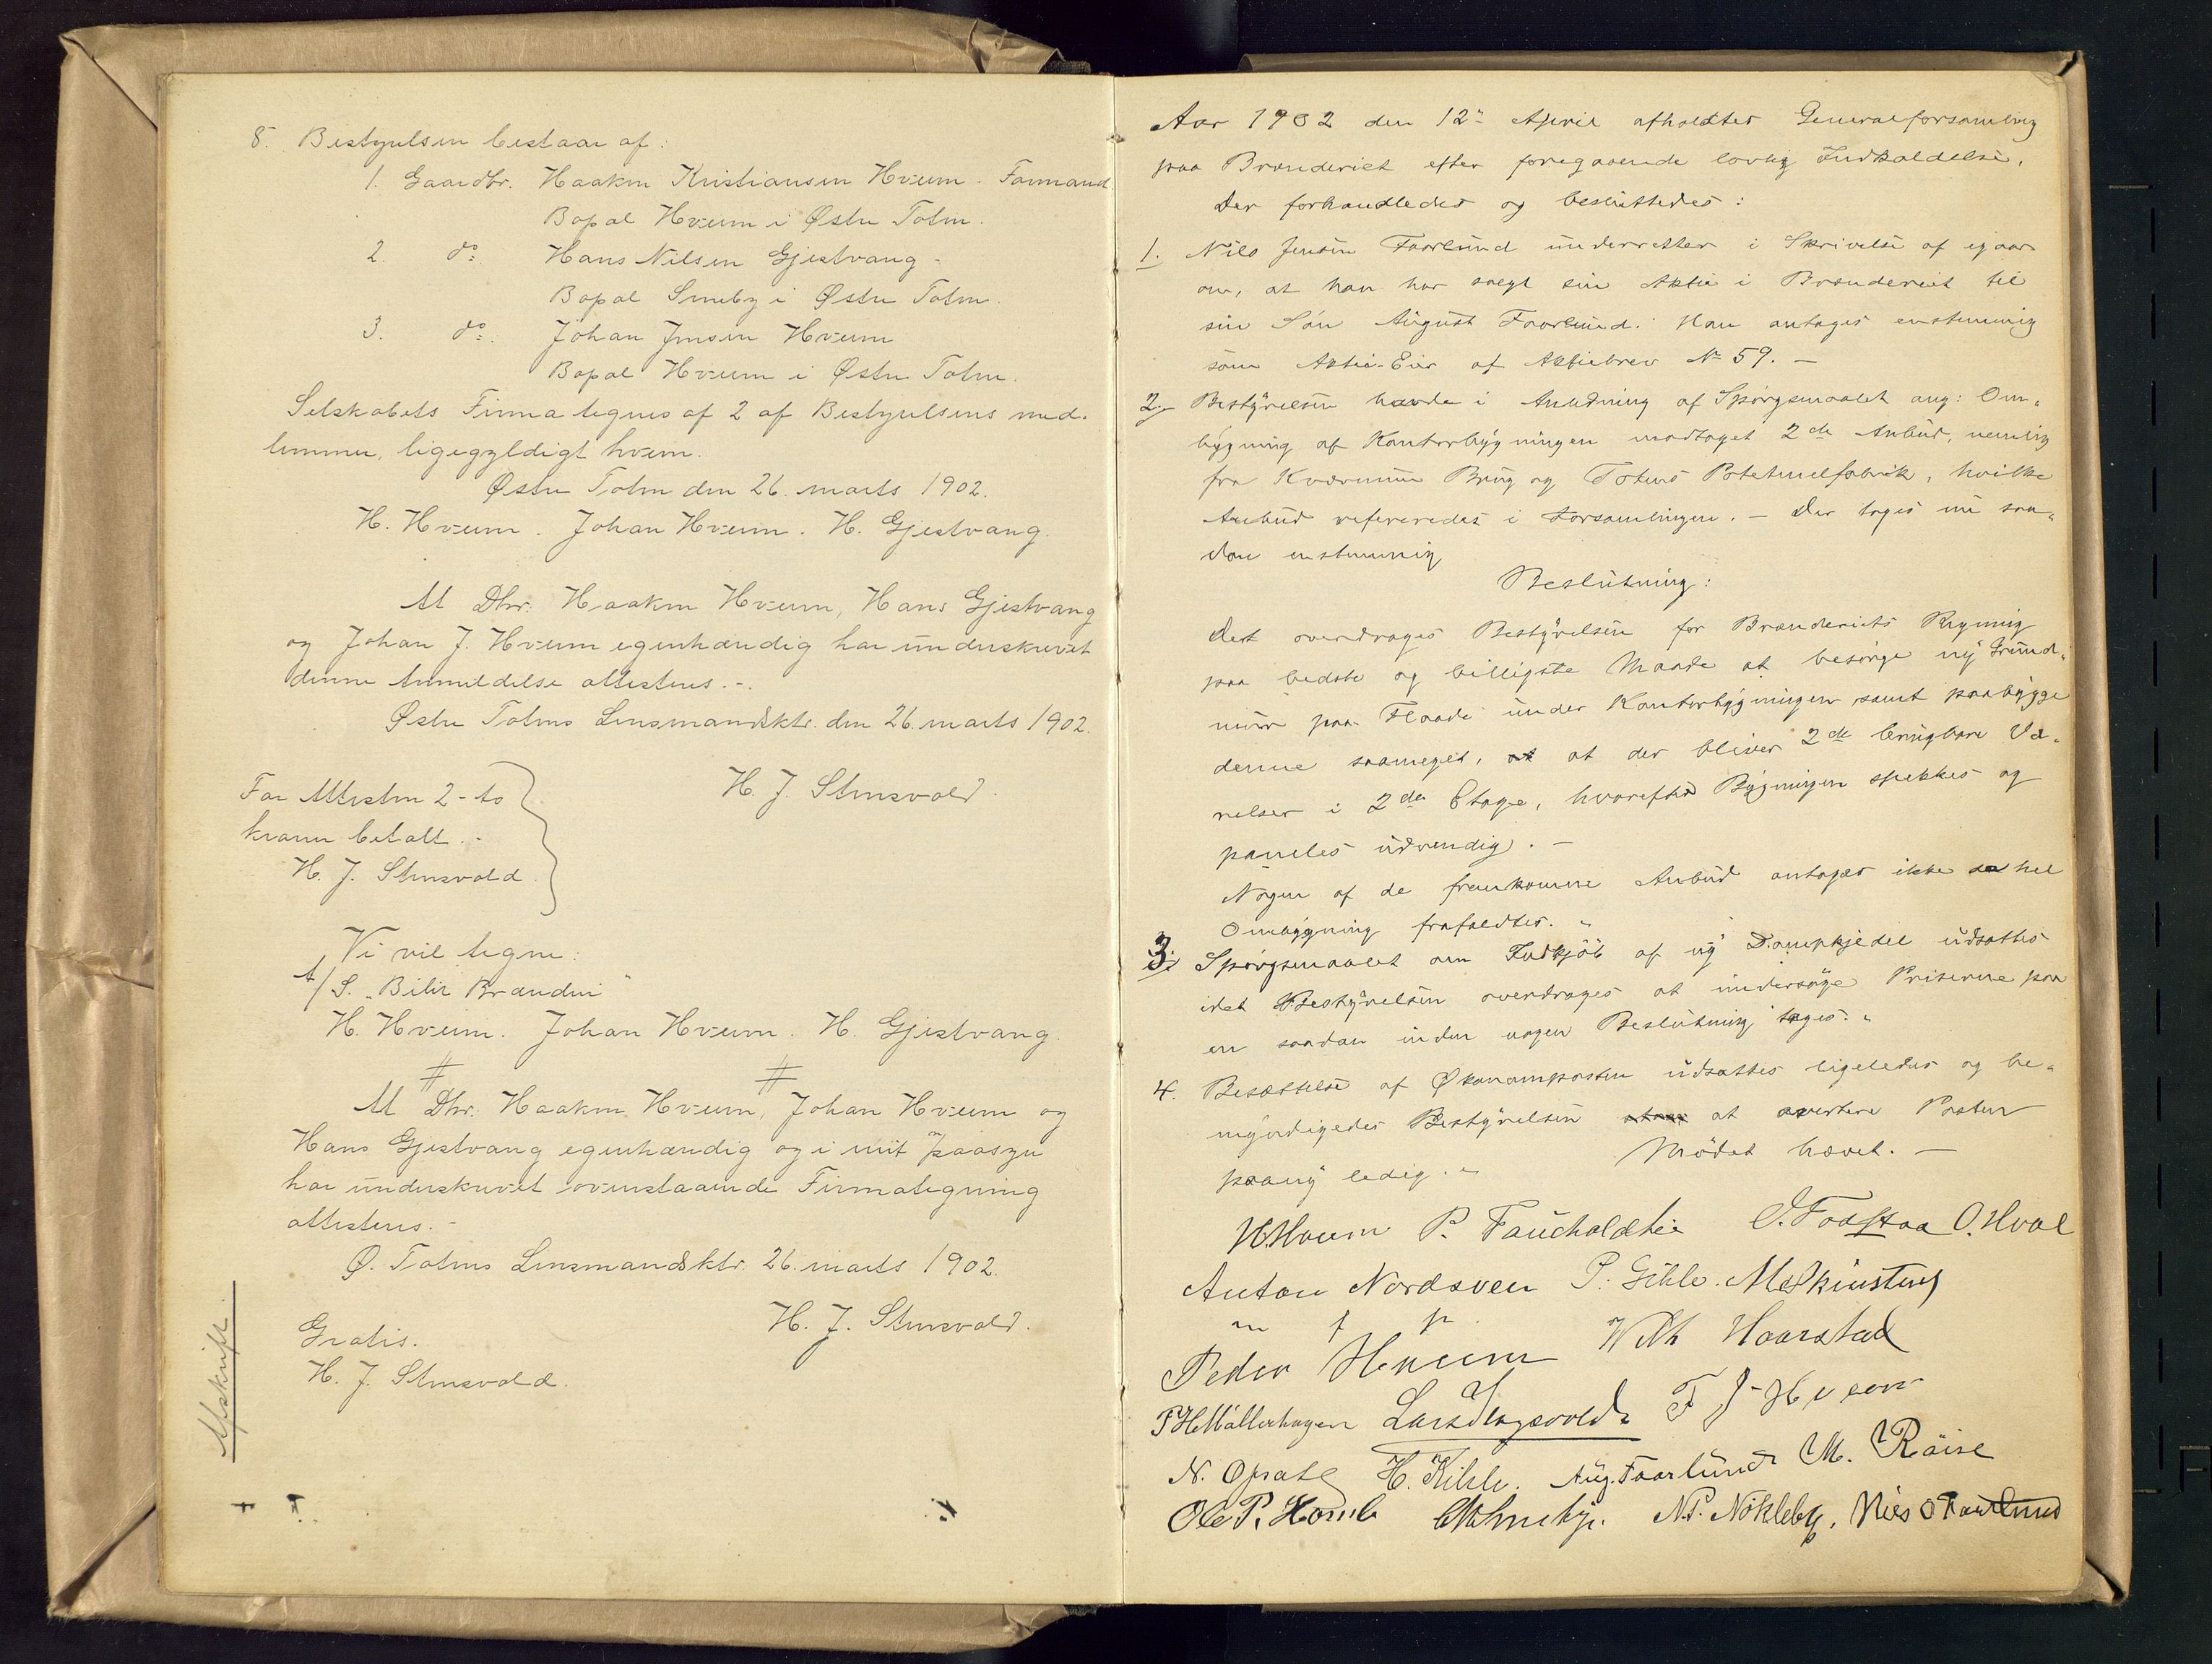 8. Bestyrelsen bestaar af:
1. Gaardbr. Haakon Kristiansen Hveem - Formand
Bopæl Hveem i Østre Toten.
2. do: Hans Nilsen Gjestvang -
Bopæl Smeby i Østre Toten.
3. do: Johan Jensen Hveem
Bopæl Hveem i Østre Toten.
Selskabets Firma tegnes af 2 af Bestyrelsens med-
lemmer, ligegyldigt hvem.
Østre Toten den 26. marts 1902.
H. Hveem. Johan Hveem. H. Gjestvang.
At Dhr. Haakon Hveem, Hans Gjestvang
og Johan J. Hveem egenhændig har underskrevet
denne Anmeldelse attesteres.-.
Østre Totens Lensmandsktr. den 26. marts 1902.
H. J. Stensvold.
For Attesten 2 - to
kroner betalt.-
H. J. Stensvold
Vi vil tegne:
A/S. "Bilit Brænderi"
H. Hveem. Johan Hveem. H. Gjestvang.
At Dhr. Haakon Hveem, Johan Hveem og
Hans Gjestvang egenhændig og i mit Paasyn
har underskrevet ovenstaaende Firmategning
attesteres.-
Ø. Totens Lensmandsktr. 26. marts 1902.
H. J. Stensvold.
Gratis.
H. J. Stensvold.
Afskrift.
Aar 1902 den 12te April afholdtes Generalforsamling
paa Brænderiet efter foregaaende lovlig Indkaldelse.
Der forhandledes og besluttedes:
1. Nils Jensen Faarlund underretter i Skrivelse af igaar
om, at han har solgt sin Aktie i Brænderiet til
sin Søn August Faarlund. Han antages enstemmig
som Aktie-Eier af Aktiebrev No 59. -
2. Bestyrelsen havde i Anledning af Spørgsmaalet ang: Om-
bygning af Kontorbygningen modtaget 2de Anbud, nemlig
fra Kværnum Brug og Totens Potetmelfabrik, hvilke
Anbud refereredes i Forsamlingen. - Der toges nu saa-
dan enstemmig
Beslutning:
Det overdrages Bestyrelsen for Brænderiets Regning
paa bedste og billigste Maade at besørge ny Grund-
mur paa Flaade under Kontorbygningen samt paabygge
denne saameget, at der bliver 2de brugbare Væ-
relser i 2den Etage, hvorefter Bygningen spekkes og
paneles udvendig. -
Nogen af de fremkomne Anbud antages ikke da hel
Ombygning frafaldtes. "
3. Spørgsmaalet om Indkjøb af ny Dampkjedel udsattes
idet Bestyrelsen overdrages at undersøge Priserne paa
en saadan inden nogen Beslutning tages. "
4. Besættelse af Økonomposten udsattes ligeledes og be-
myndigedes Bestyrelsen at avertere Posten
paany ledig. " Mødet hævet. -
H. Hveem P. Fauchaldhei O. Hval
Anton Nordsveen P. Gihle.
m f p
Peder Hveem Wilh Haarstad
F H Møllerhagen F J Hveem
N. Opsate H. Kihle. Aug. Faarlund M. Røise
Ole P. Homb Smeby. N.P. Nøkleby, Nils O Faarlund